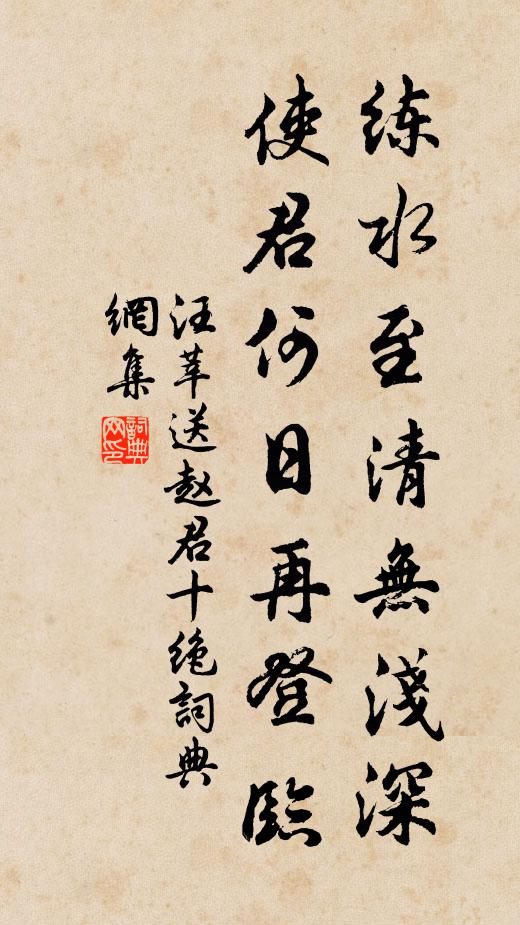 练水至清無淺深
使君何日再登臨
汪莘送赵君十绝詞典
網集
詞典
网印